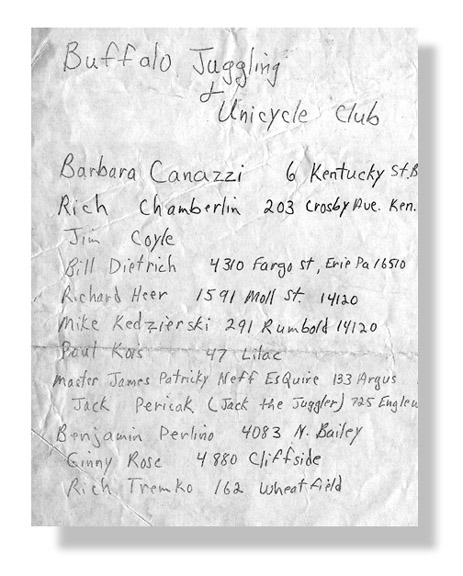 Buffalo Juggling
&
Unicycle Club
Barbara Canazzi 6 Kentucky St. B
Rich Chamberlin 203 Crosby Ave. Ken.
Jim Coyle
Bill Dietrich 4310 Fargo st, Erie Pa 16510
Richard Heer 1591 Moll st. 14120
Mike Kedzierski 291 Rumbold 14120
Paul Kois 47 Lilac
Master James Patricky Neff EsQuire 133 Argus
Jack Pericak (Jack the Juggler) 725 Englew
Benjamin Perlino 4083 N. Bailey
Ginny Rose 4880 Cliffside
Rich Tremko 162 Wheatfield